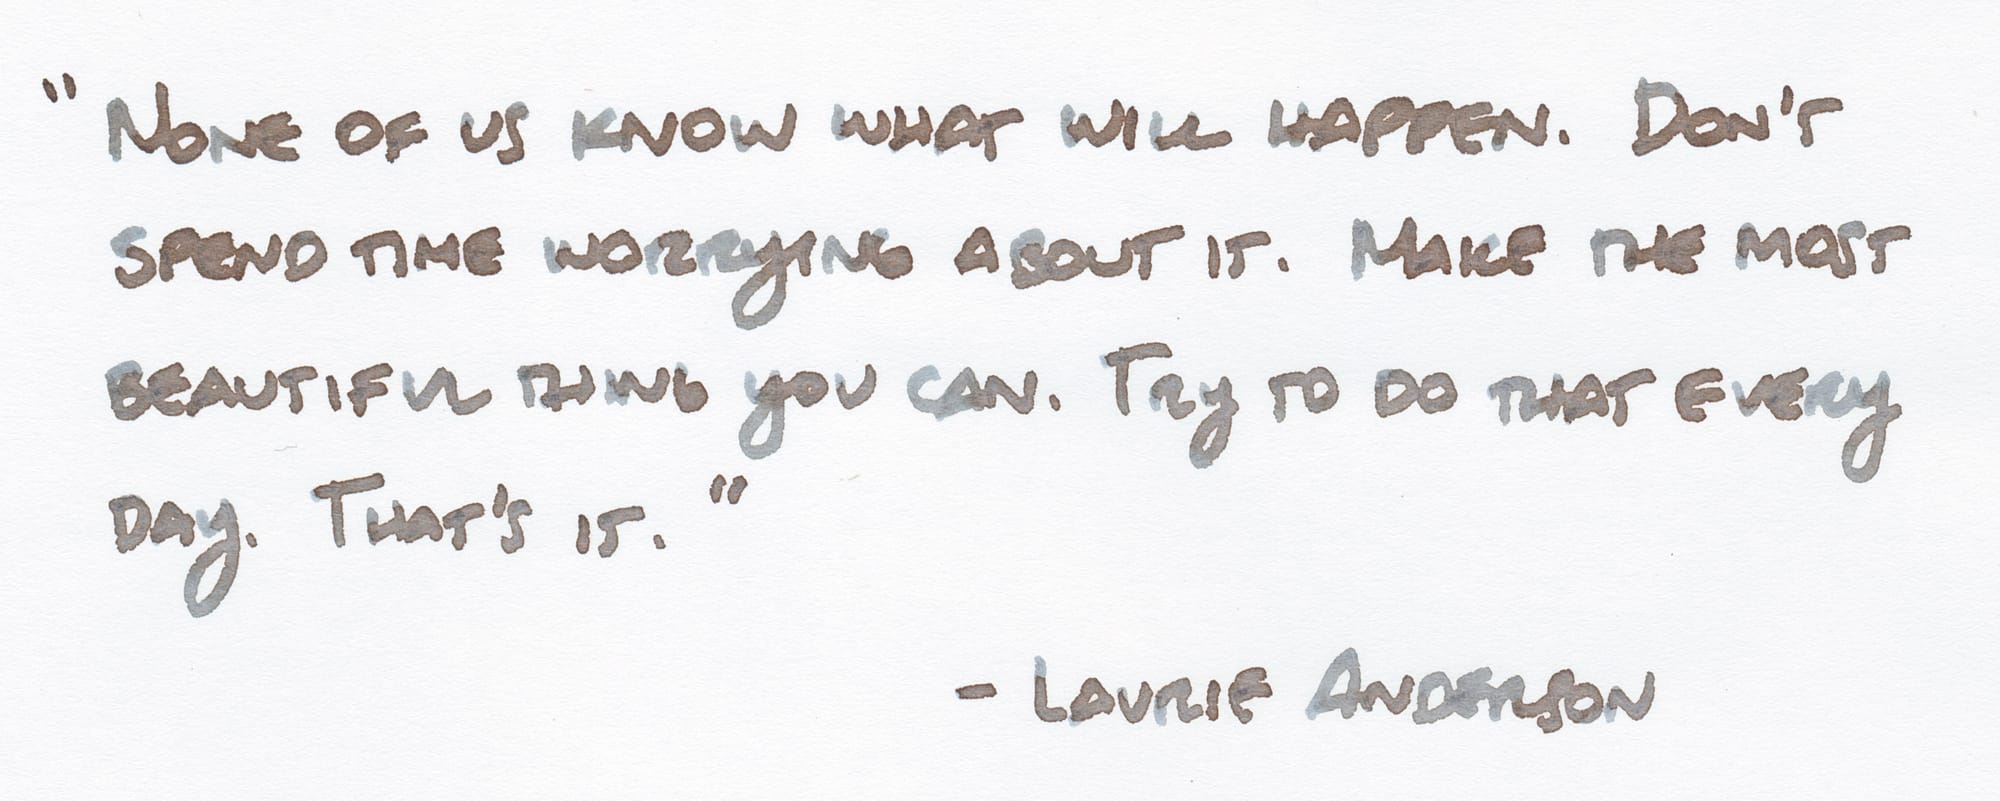 "None of us know what will happen. Don't
spend time worrying about it. Make the most
beautiful thing you can. Try to do that every
day. That's it."
- Laurie Anderson